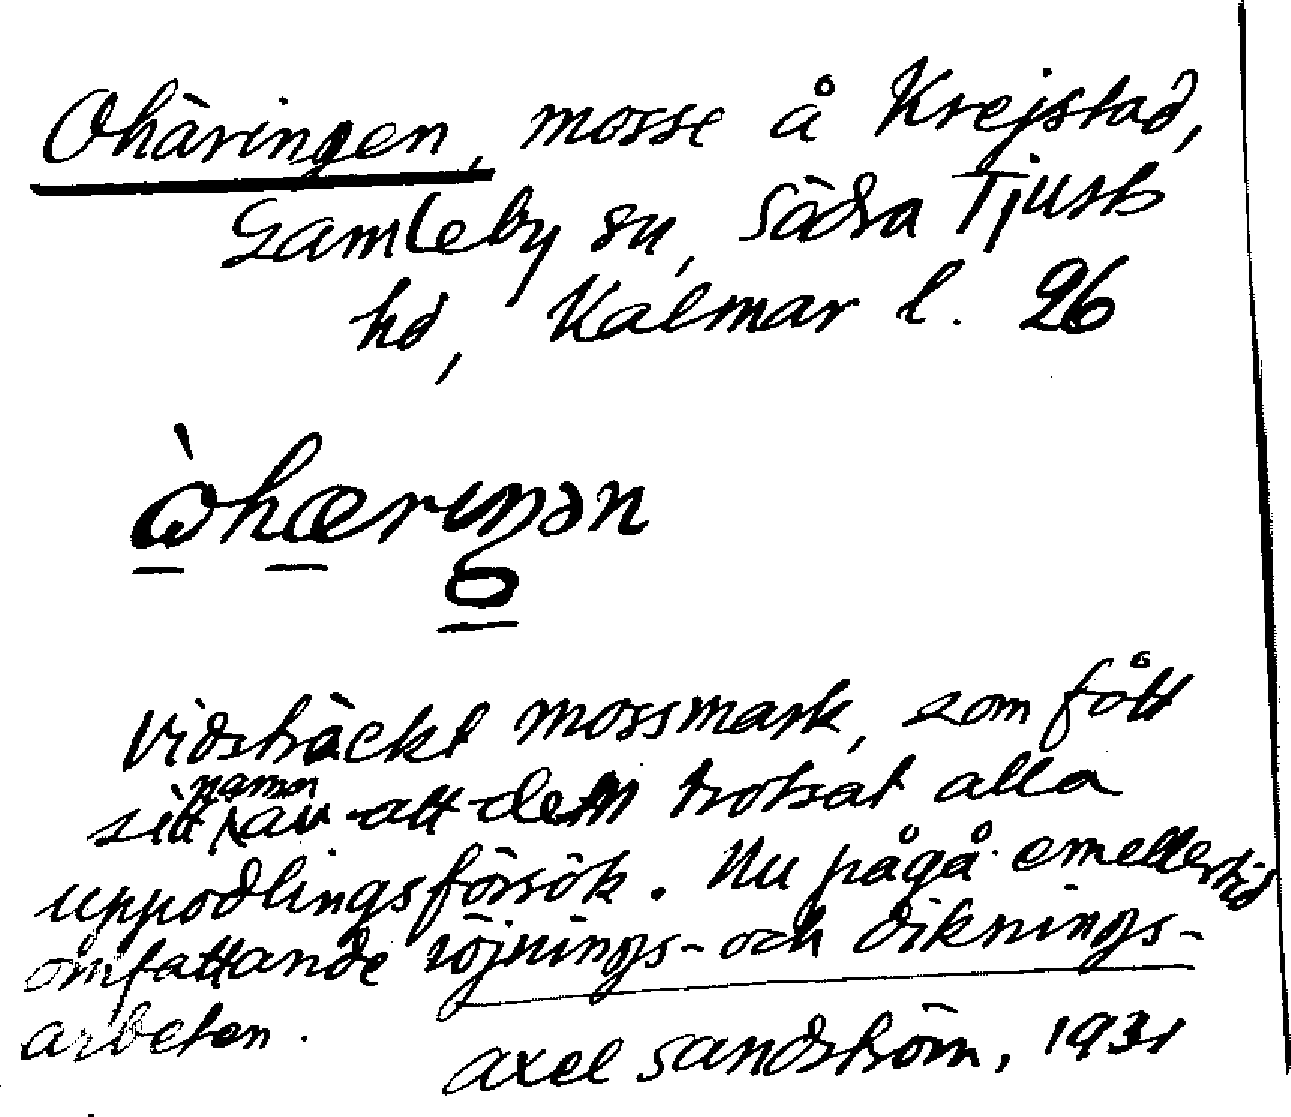 Ohäringen, mosse å Krejstad,
Gamleby sn, Södra Tjusts
hd, Kalmar l. 26
vidsträckt mossmark, som fått
sitt namn av att den trotsat alla
uppodlingsförsök. Nu pågå emellertid
omfattande röjnings- och diknings-
arbeten.
Axel Sandström, 1931